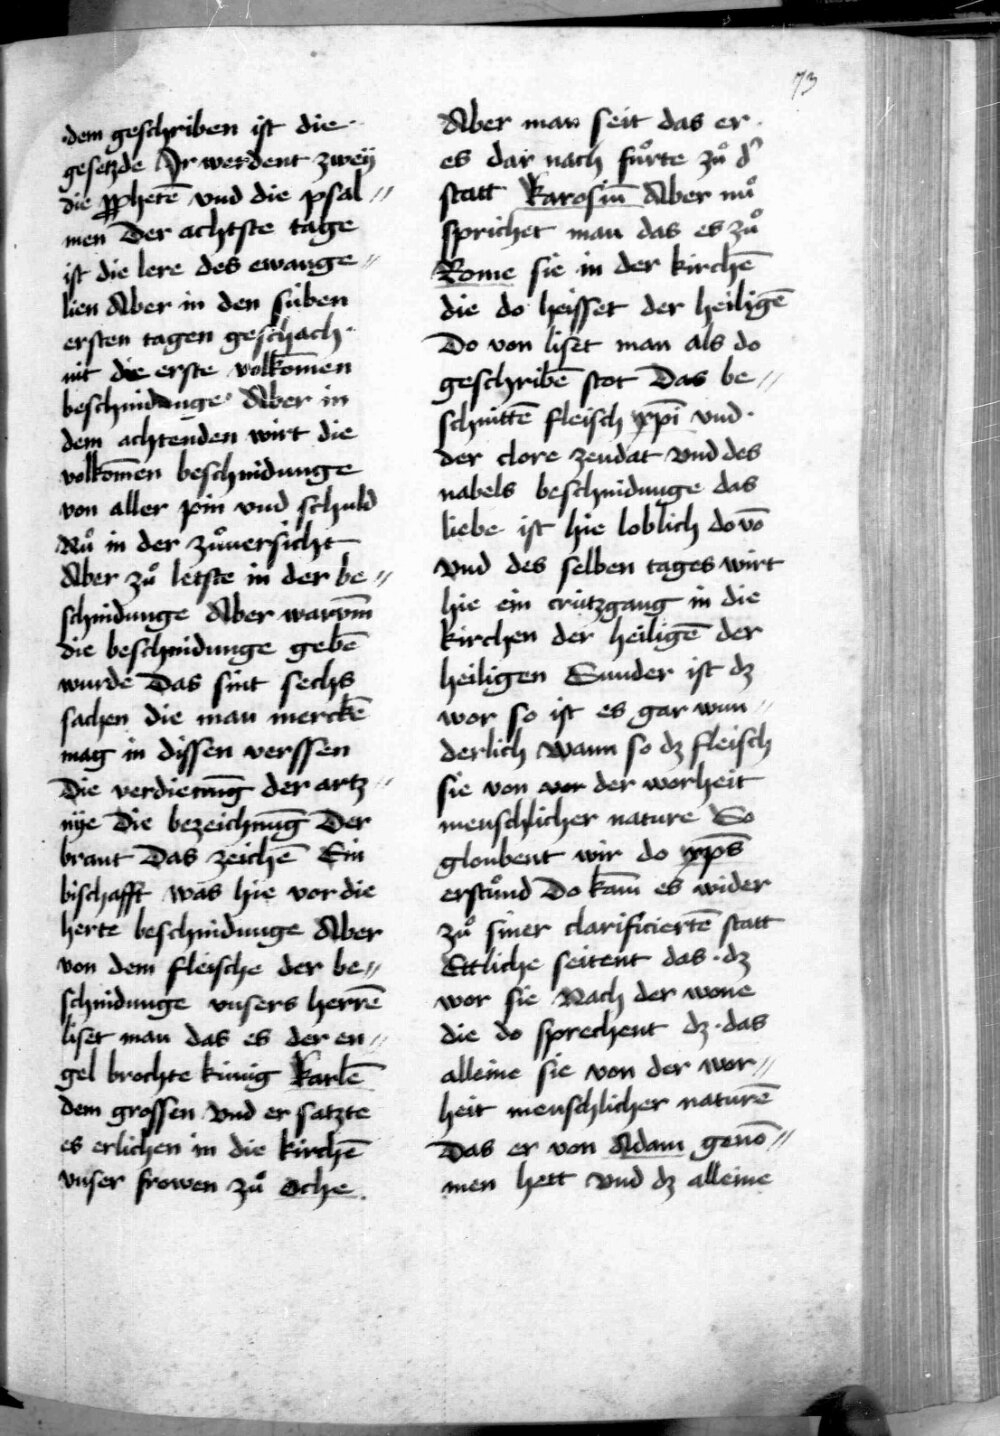 73
dem geschriben ist die
gesetzde Ir werdent zwey
die pphetē vnd die psal //
men Der achtste tage
ist die lere des ewange //
lien Aber in den siben
ersten tagen geschach
nit die erste volkōmen
beschnidunge Aber in
dem achtenden wirt die
volkōmen beschnidunge
von aller pin vnd schuld
Nuͦ in der zuͦuersicht
Aber zuͦ letste in der be //
schnidunge Aber warvm̄
die beschnidunge gebē
wurde Das sint sechs
sachen die man merckē
mag in dissen verssen
Die verdienūg der artz //
nye Die bezeichnūg Der
braut Das zeichē Ein
bischafft was hie vor die
herte beschnidunge Aber
von dem fleische der be //
schnidunge vnsers herrē
liset man das es der en //
gel brochte kùnig karlē
dem grossen vnd er satzte
es erlichen in die kirchē
vnser frowen zuͦ Oche
Aber man seit das er
es dar nach fuͦrte zuͦ dˀ
statt karosiū Aber nuͦ
sprichet man das es zuͦ
Rome sie in der kirchē
die do heisset der heiligē
Do von liset man als do
geschribē stot Das be //
schnittē fleisch xp̄i vnd
der clore zendat vnd des
nabels beschnidunge das
liebe ist hie loblich do vō
vnd des selben tages wirt
hie ein crützgang in die
kirchen der heiligē der
heiligen Sunder ist dz
wor so ist es gar wun //
derlich wann so dz fleisch
sie von der worheit
menschlicher nature So
gloubent wir do xp̄s
erstuͦnd Do kam̄ es wider
zuͦ siner clarificiertē statt
Ettliche seitent das dz
wor sie Nach der wone
die do sprechent dz das
alleine sie von der wor //
heit menschlicher naturē
Das er von Adam genō //
men hett vnd dz alleine